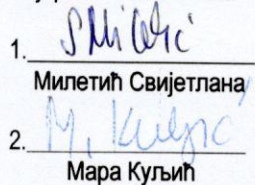 1. S Miletić
Милетић Свијетлана
2. M. Kuljić
Мара Куљић